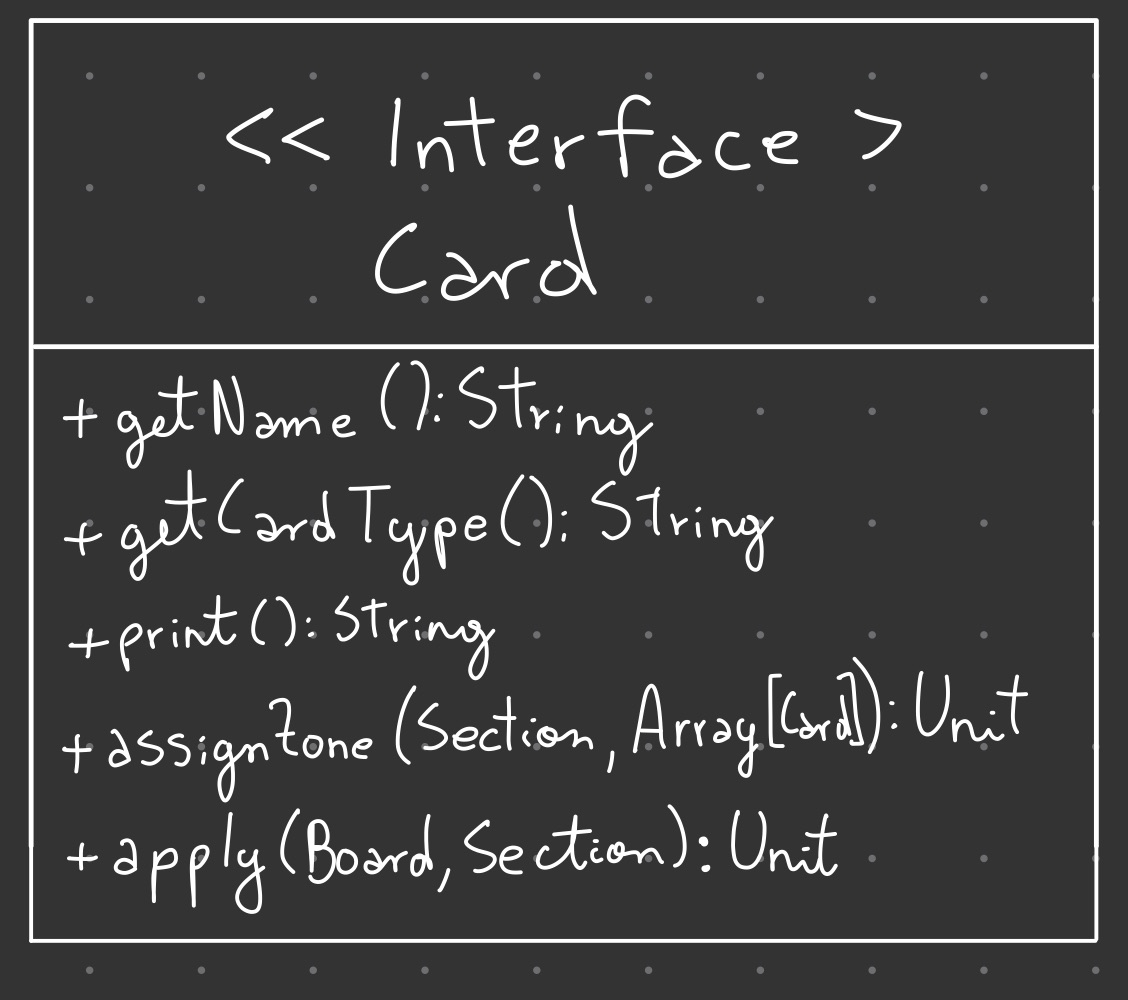 << Interface >
Card
+ getName (): String
+ getCardType(): String
+ print(): String
+ assignZone (Section, Array[Card]): Unit
+ apply (Board, Section): Unit